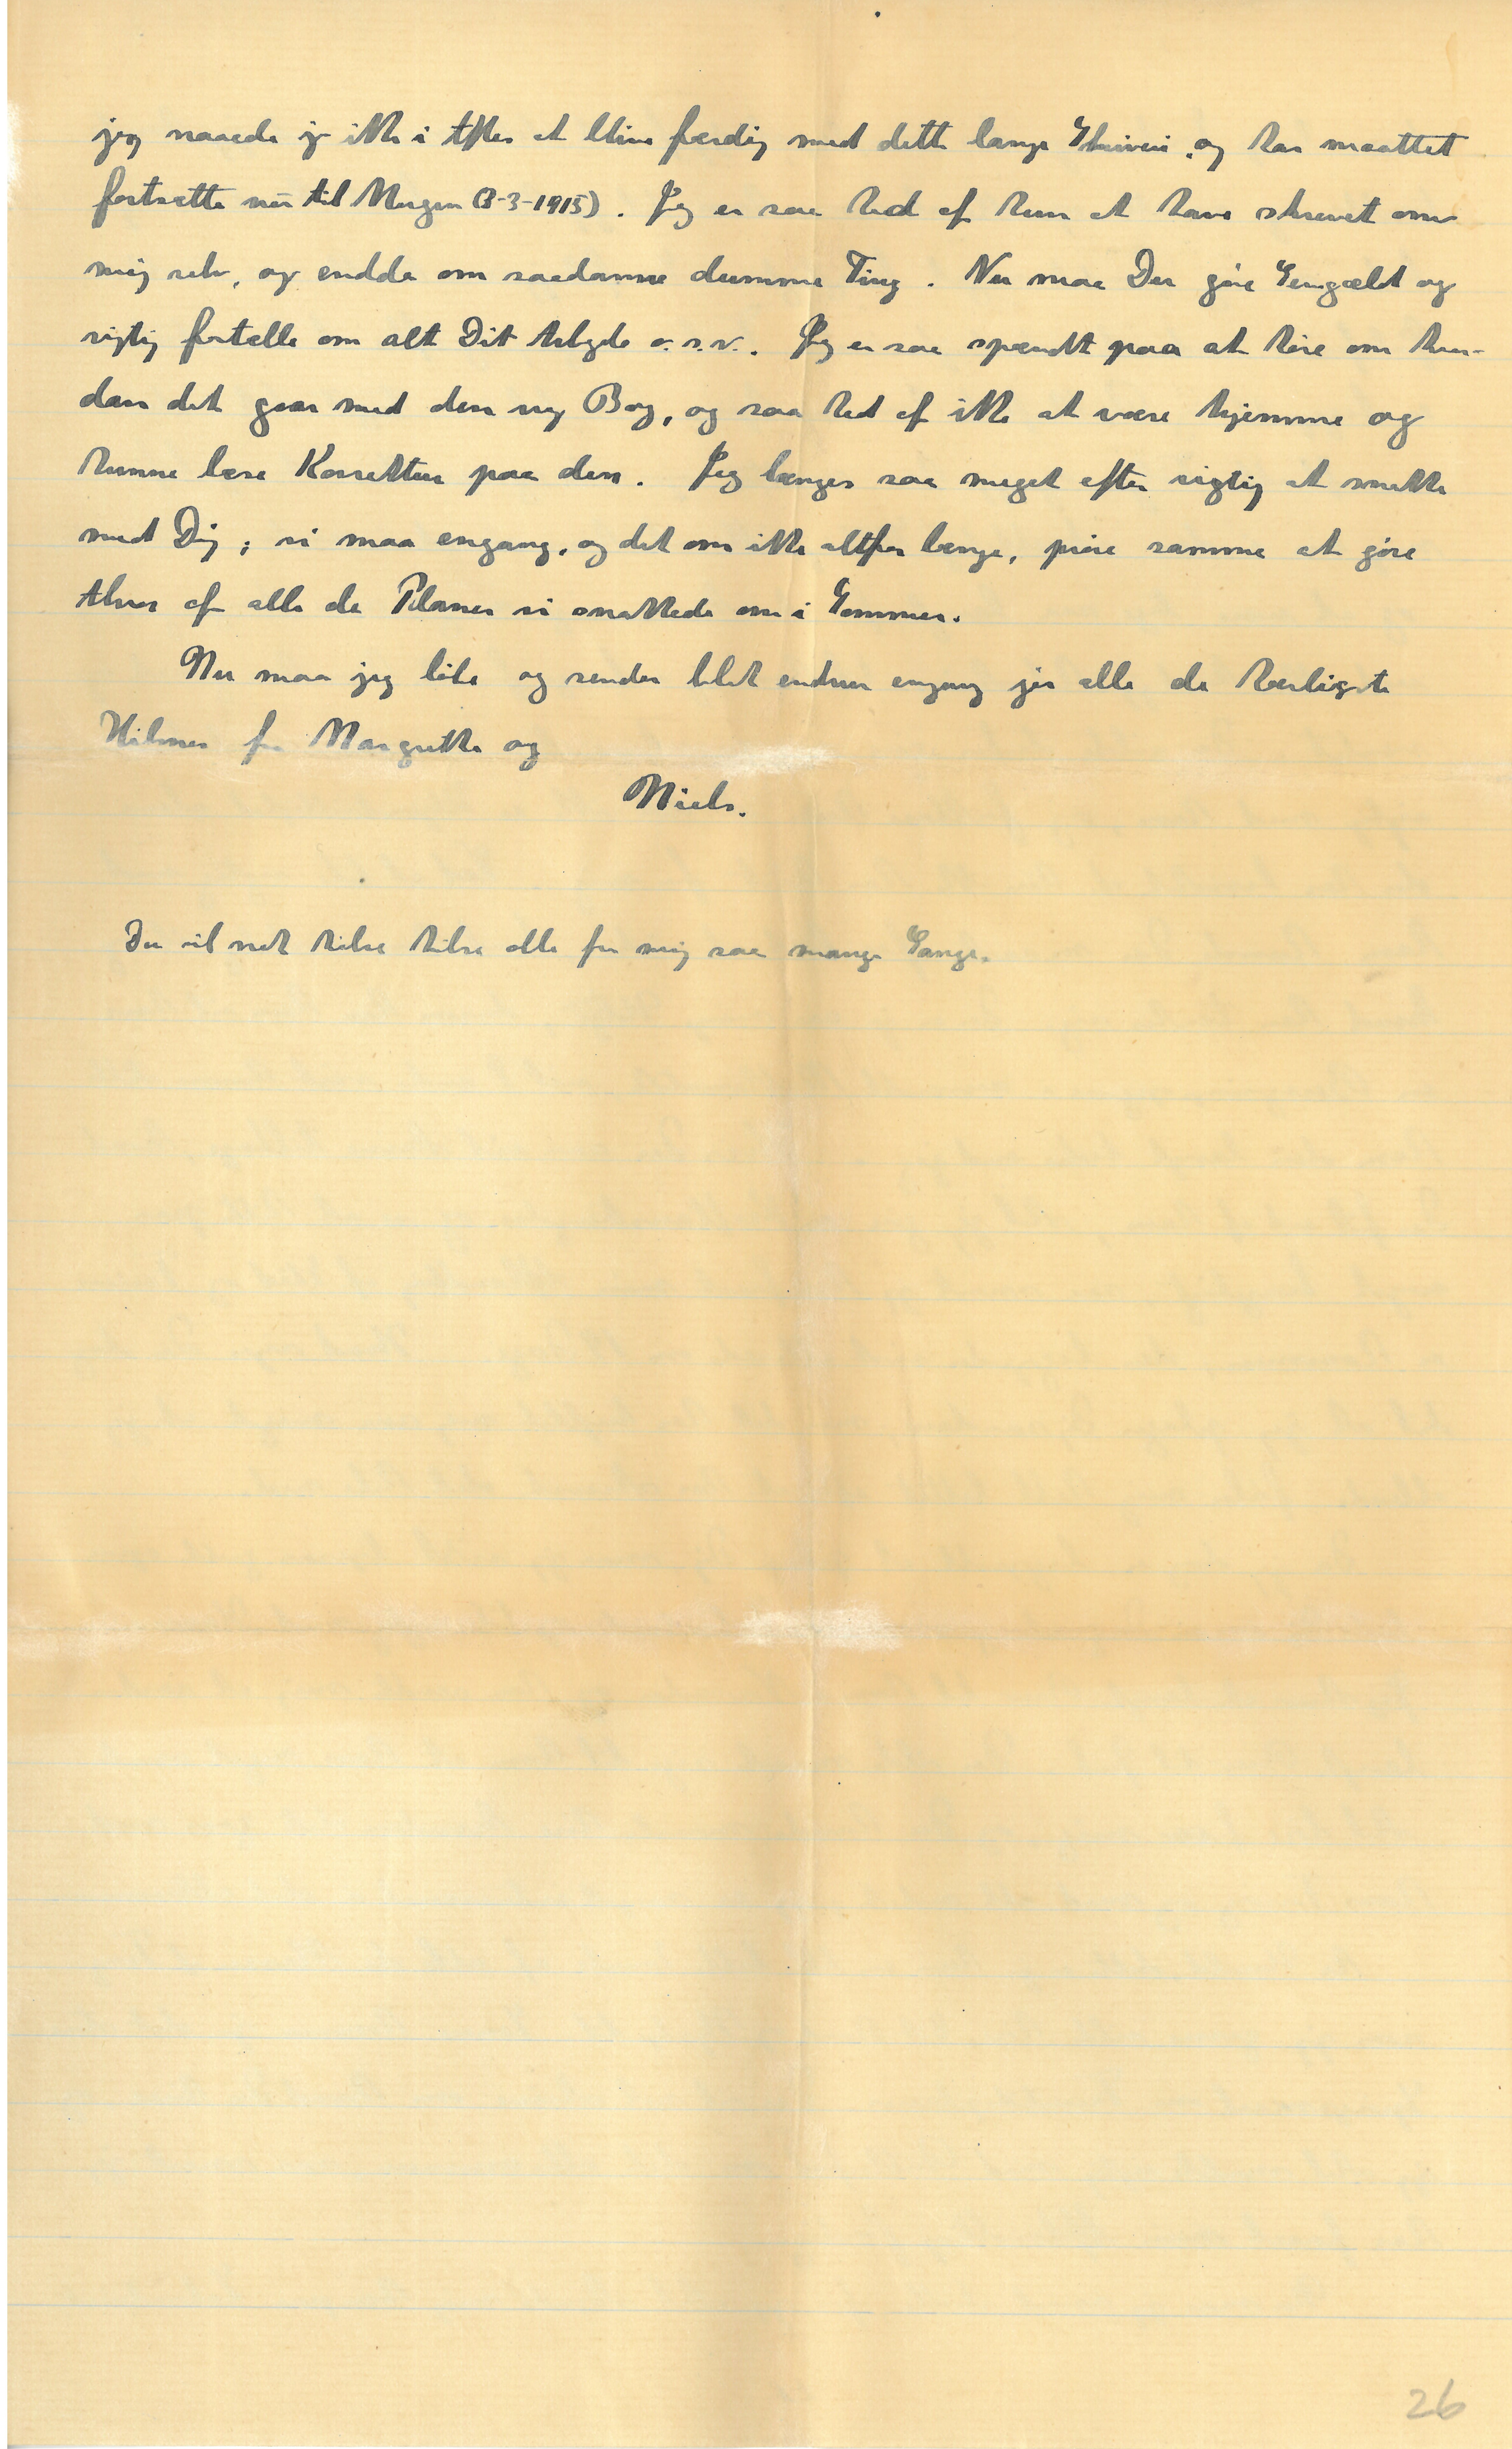 jeg naaede jo ikke i Aftes at blive færdig med dette lange Skriveri, og har maattet
fortsætte nu til Morgen (3-3-1915). Jeg er saa ked af kun at have skrevet om
mig selv, og endda om saadanne dumme Ting. Nu maa Du gøre Gengæld og
rigtig fortælle om alt Dit Arbejde o.s.v. Jeg er saa spændt paa at høre om hvor-
dan det gaar med den ny Bog, og saa ked af ikke at være hjemme og
kunne læse Korrektur paa den. Jeg længes saa meget efter rigtig at snakke
med Dig; vi maa engang, og det om ikke altfor længe, prøve sammen at gøre
Alvor af alle de Planer vi snakkede om i Sommer.
Nu maa jeg løbe og sender blot endnu engang jer alle de kærligste
Hilsner fra Margrethe og
Niels.
Du vil nok hilse hilse alle fra mig saa mange Gange.
26